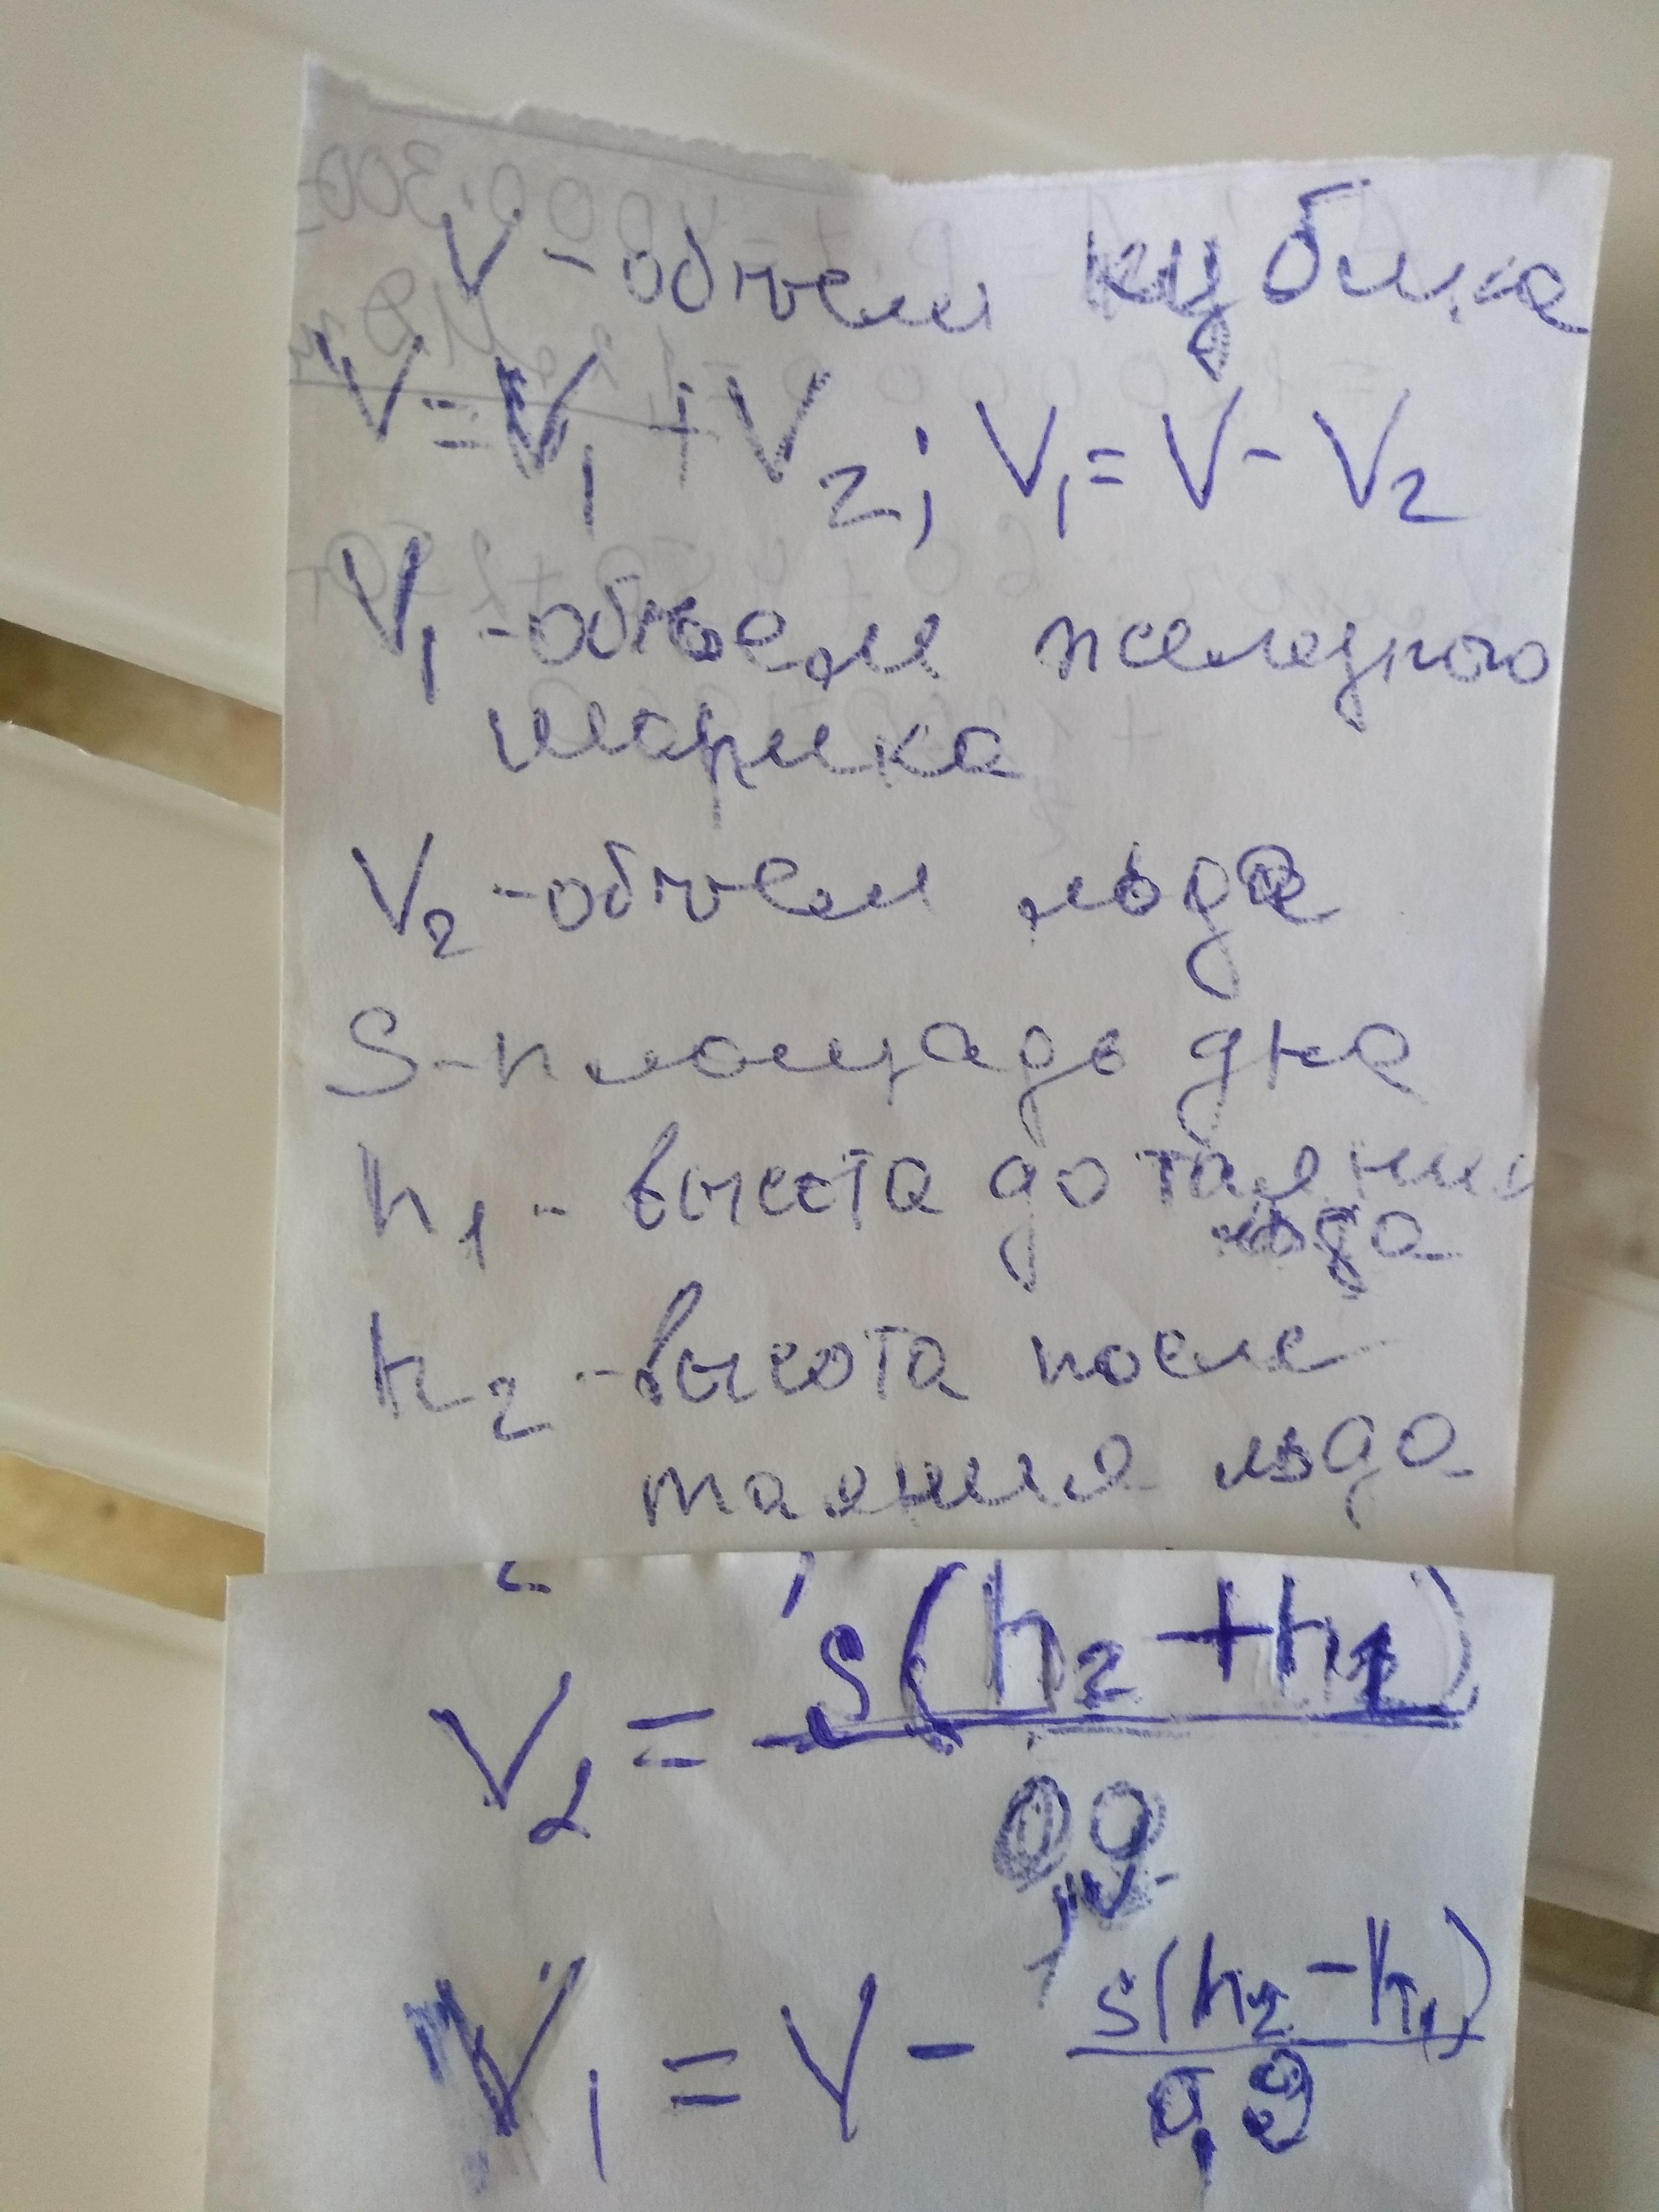 V - объем кубика
V = V₁ + V₂; V₁ = V - V₂
V₁ - объем железного
шарика
V₂ - объем льда
S - площадь дна
h₁ - высота до таяния
льда
h₂ - высота после
таяния льда
V₂ = S(h₂ + h₁) / 0,9
V₁ = V - S(h₂ - h₁) / 0,9